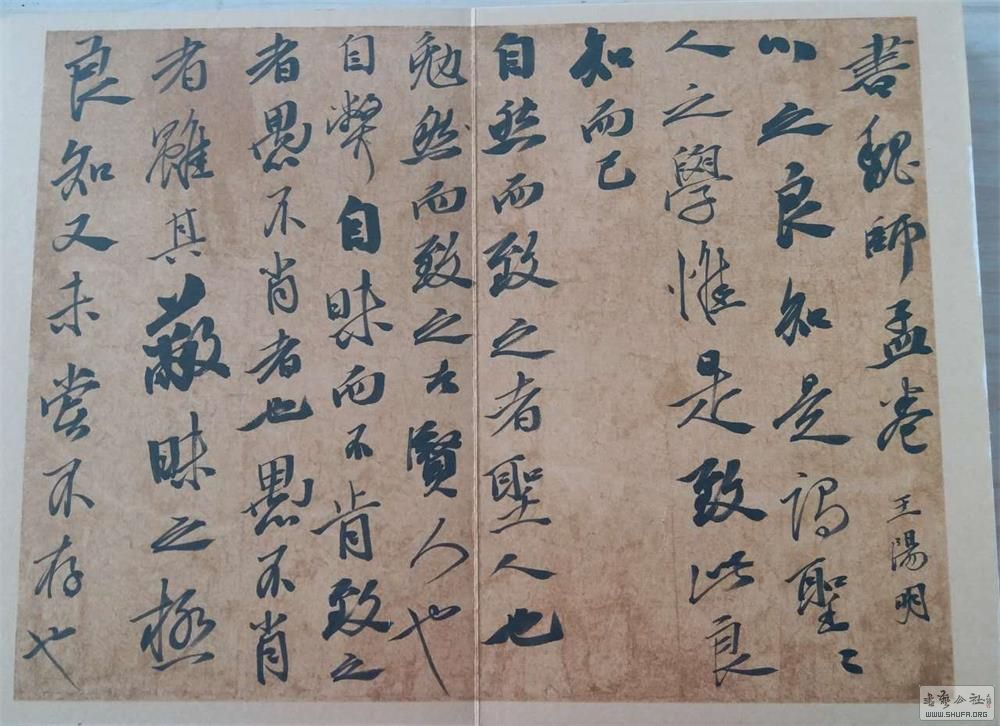 書魏師孟卷 王陽明
心之良知是謂聖〻
人之學惟是致此良
知而已
自然而致之者聖人也
勉然而致之者賢人也
自弊自昧而不肯致之
者愚不肖者也愚不肖
者雖其蔽昧之極
良知又未嘗不存也
WWW.SHUFA.ORG